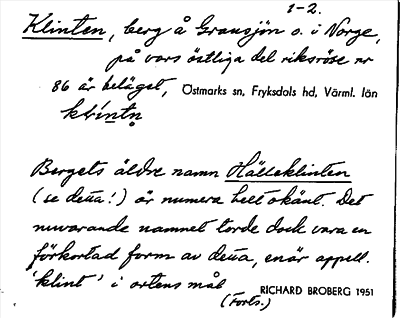 1-2.
Klinten, berg å Gransjön o. i Norge,
på vars östliga del riksröse nr
86 är beläget, Östmarks sn, Fryksdals hd, Värml. län
klintn
Bergets äldre namn Hälleklinten
(se detta!) är numera helt okänt. Det
nuvarande namnet torde dock vara en
förkortad form av detta, enär appell.
'klint' i ortens mål
(Forts.) RICHARD BROBERG 1951